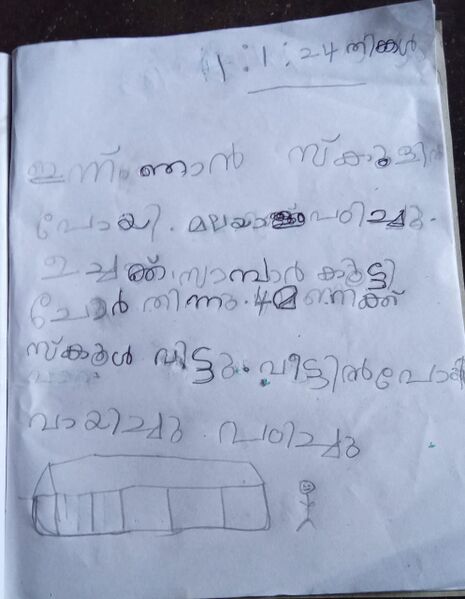 1:1:24 തിങ്കൾ
ഇന്ന് ഞാൻ സ്കൂളിൽ
പോയി. മലയാളം പഠിച്ചു.
ഉച്ചക്ക് സാമ്പാർ കൂട്ടി
ചോർ തിന്നു. 4 മണിക്ക്
സ്കൂൾ വിട്ടു. വീട്ടിൽ പോയി
വായിച്ചു പഠിച്ചു